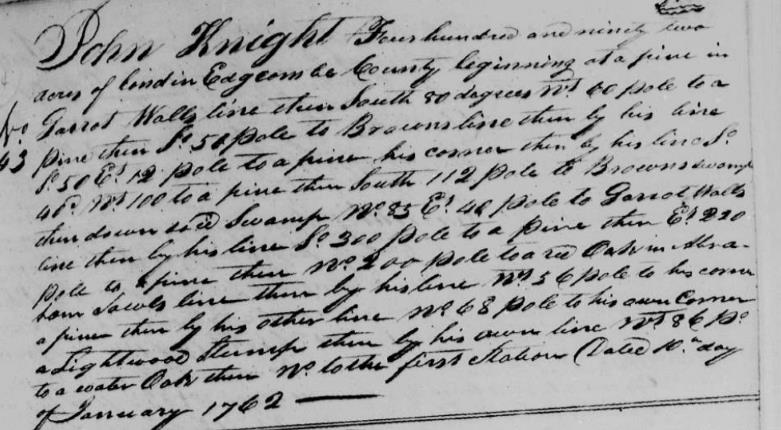 John Knight Four hundred and ninety two
acres of land in Edgcombe County beginning at a pine in
No. Garrot Walls line then South 80 degrees Wt. 60 pole to a
43 pine then So. 50 pole to Browns line then by his line
So. 50 Et. 12 pole to a pine his corner then by his line So.
40d. Wt. 100 to a pine then South 112 pole to Browns swamp
then down said Swamp No. 85 Et. 40 pole to Garrot Walls
line then by his line So. 300 pole to a pine then Et. 220
pole to a pine then No. 200 pole to a red Oak in Abra-
ham line then by his line Wt. 56 pole to his corner
a pine then by his other line No. 68 pole to his own Corner
a Lightwood Stump then by his own line Wt. 86 po.
to a water Oak then No. to the first Station (Dated 10th day
of January 1762